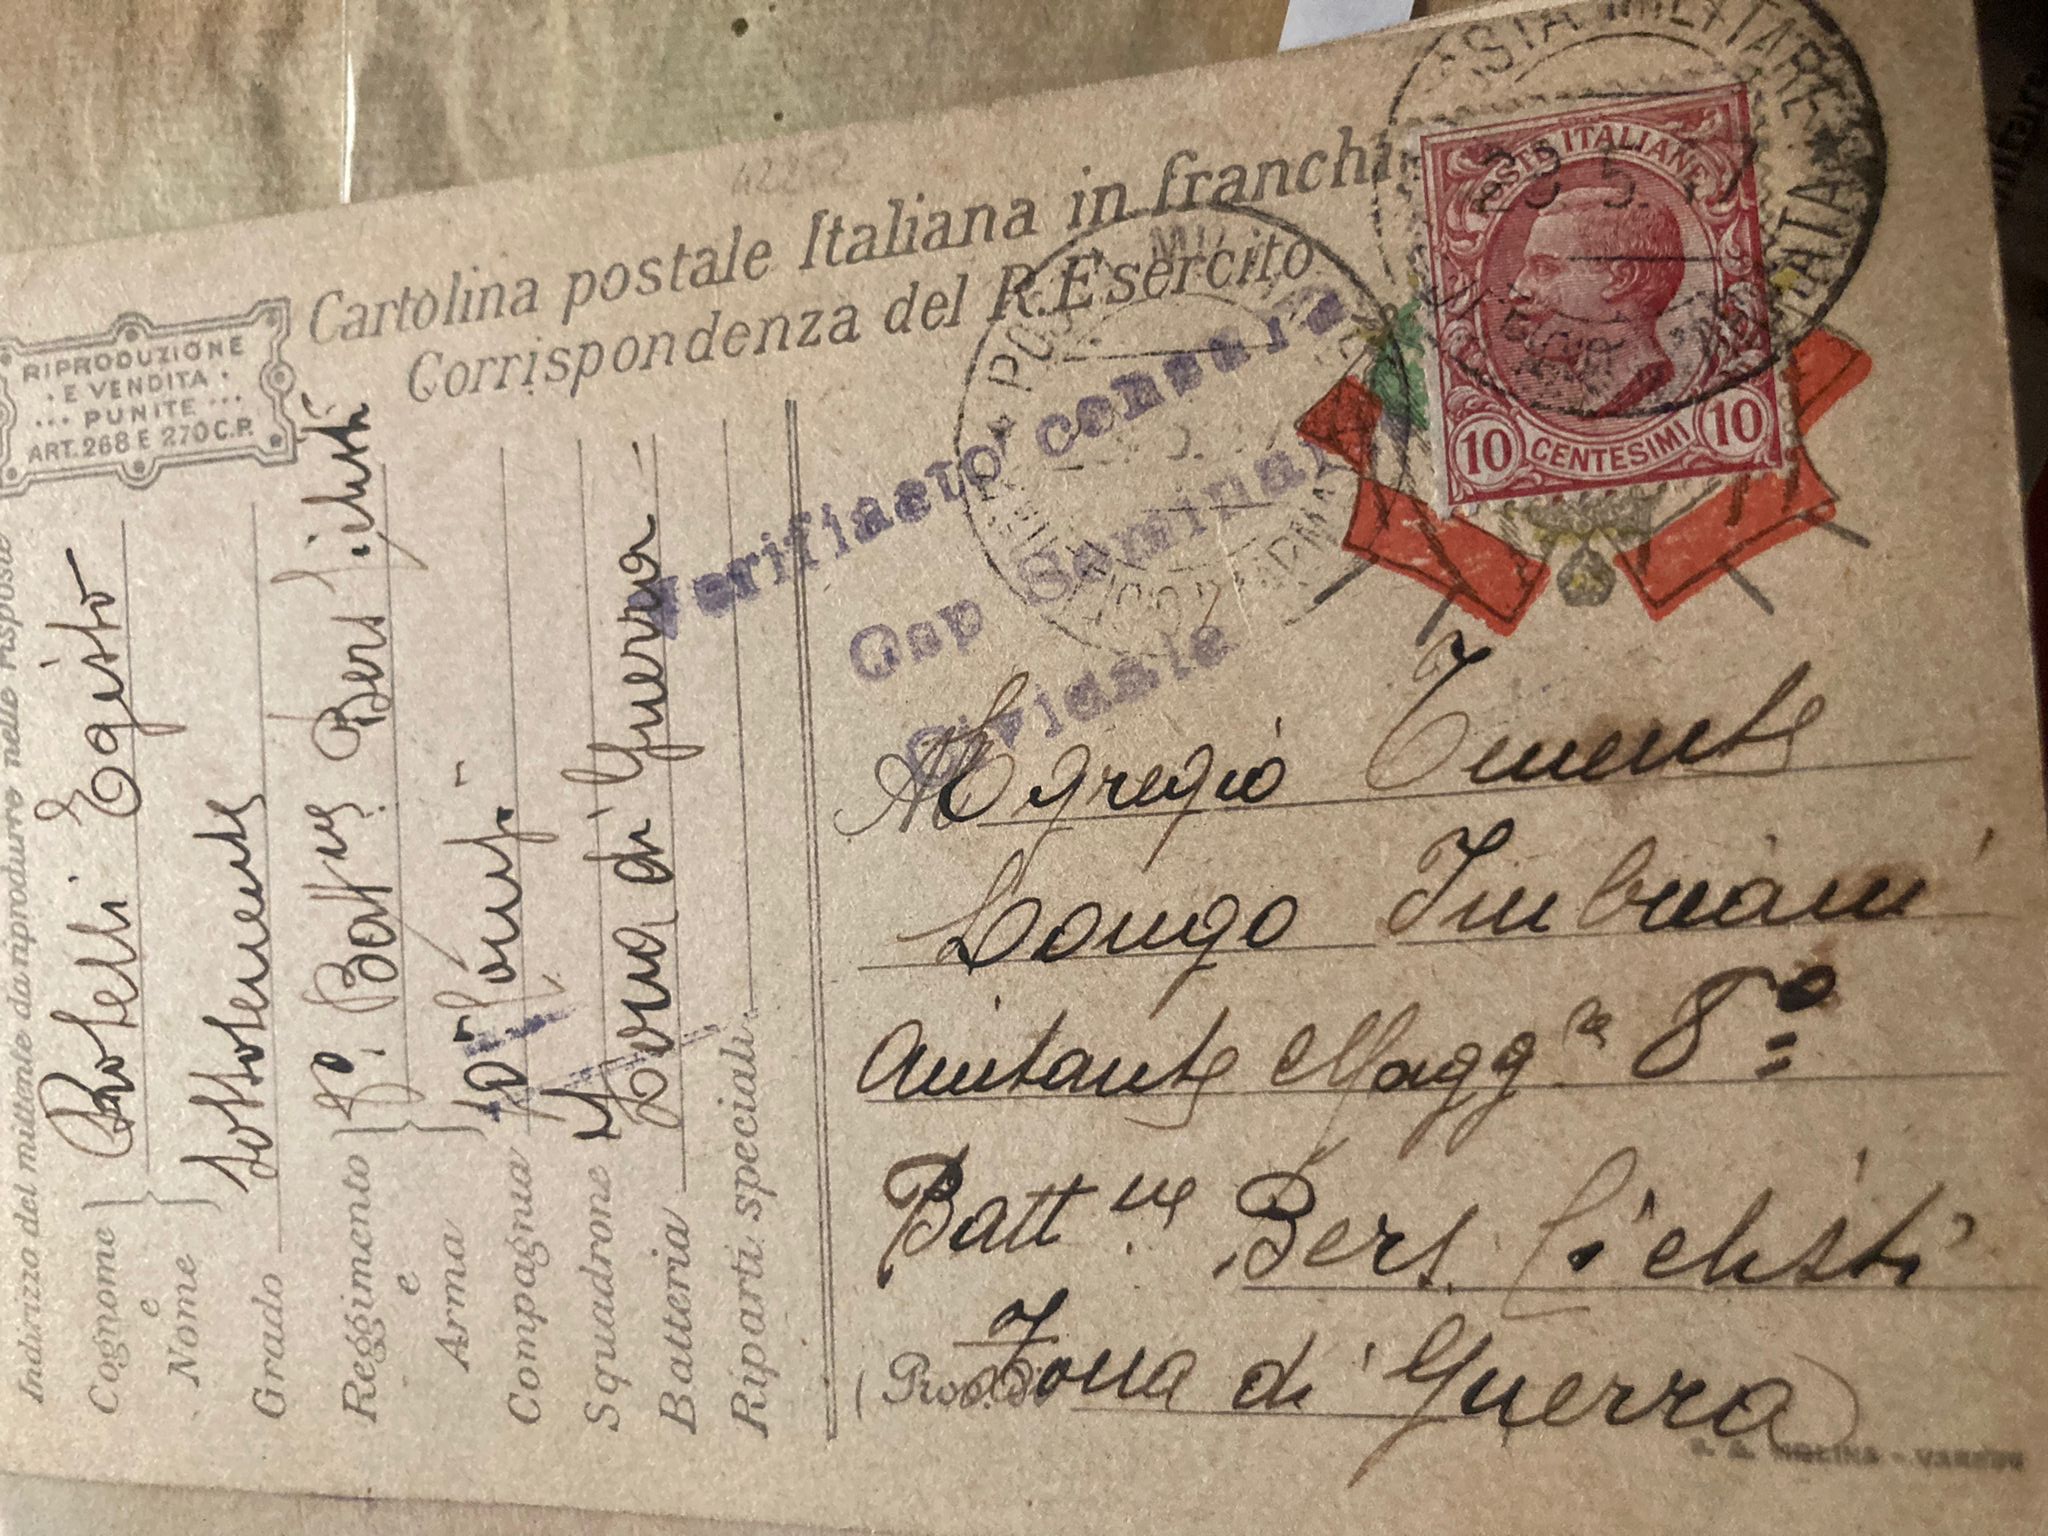 Cartolina postale Italiana in franchi
Corrispondenza del R. Esercito
RIPRODUZIONE
E VENDITA
PUNITE
ART. 268 E 270 C.P.
POSTE ITALIANE
10 CENTESIMI 10
POSTA MILITARE
28 5. 17
POSTA MILITARE
Verifiacto censura
Osp Seminar
Cividale
Indirizzo del mittente da riprodurre nelle risposte
Cognome e Nome Rotelli Egisto
Grado Sottotenente
Reggimento e Arma 8º Batt ne Bers Ciclisti
Compagnia
Squadrone
Batteria Zona di Guerra
Riparti speciali
Al Egregio Tenente
Longo Imbriani
Aiutante Magg re 8º
Batt ne Bers. Ciclisti
(Prov. di Zona di Guerra)
S. A. MOLINA - VARESE
42252